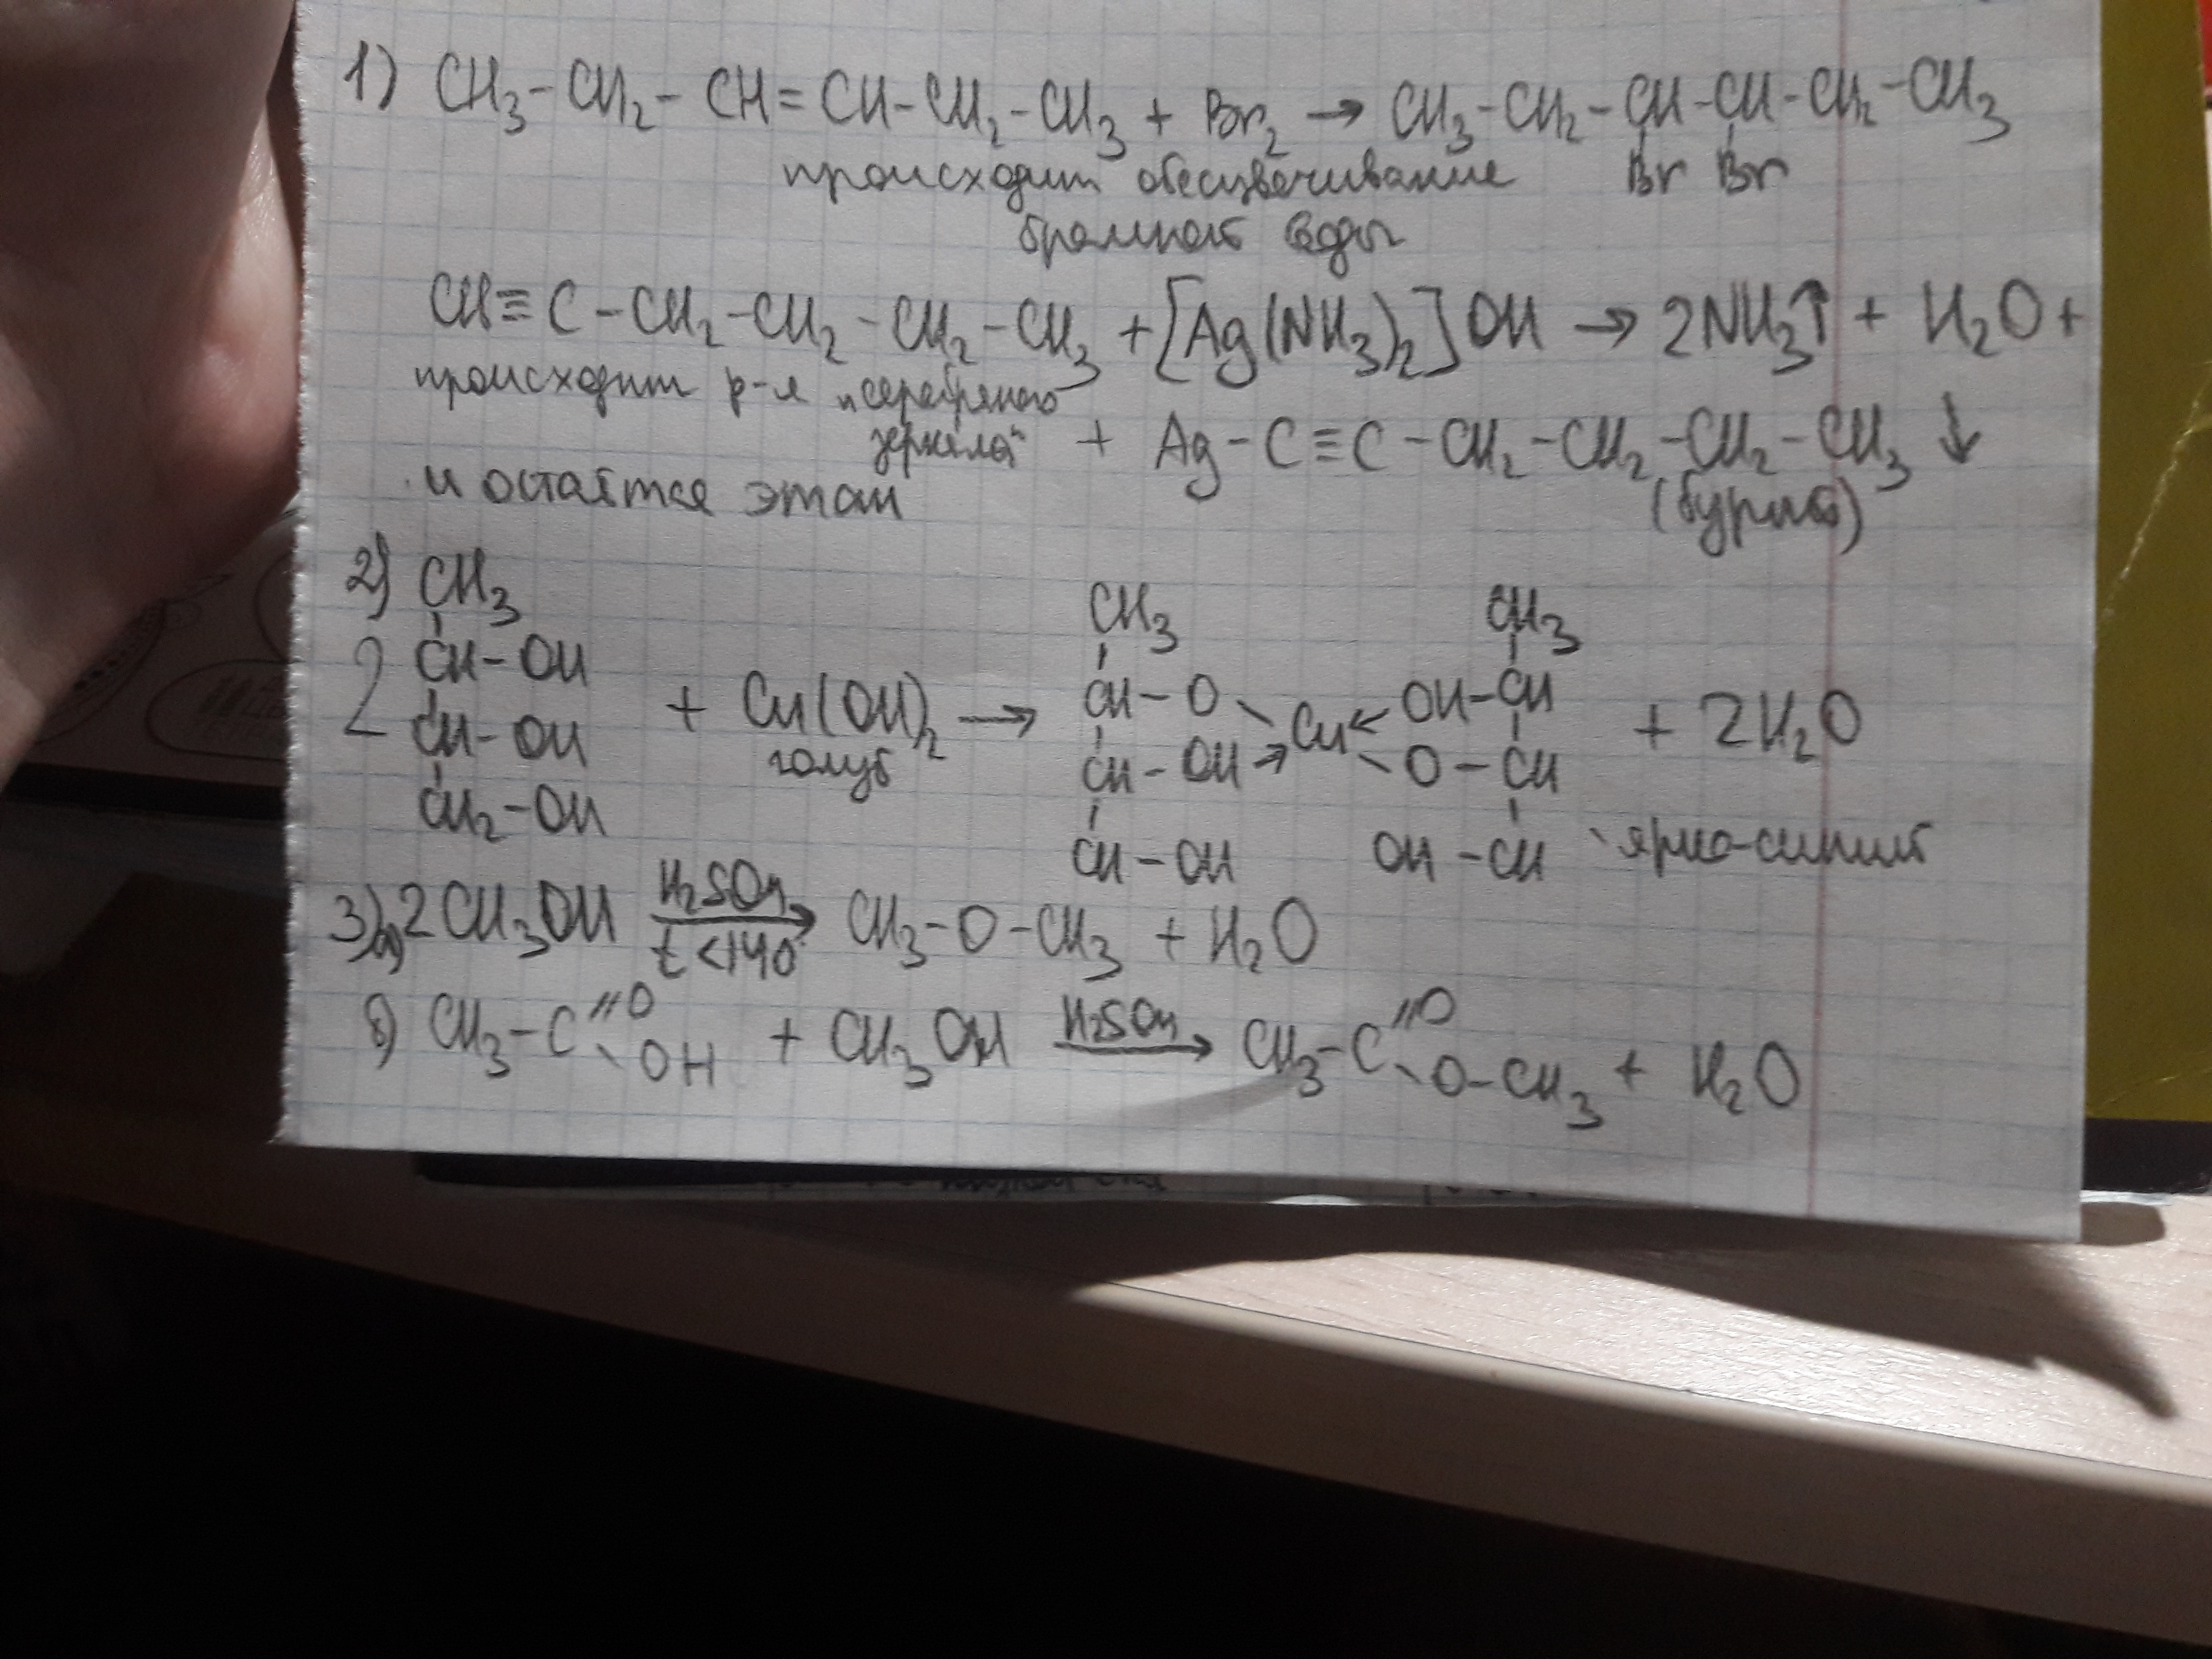 1) CH₃-CH₂-CH=CH-CH₂-CH₃ + Br₂ → CH₃-CH₂-CH-CH-CH₂-CH₃
происходит обесцвечивание Br Br
бромной воды
CH≡C-CH₂-CH₂-CH₂-CH₃ + [Ag(NH₃)₂]OH → 2NH₃↑ + H₂O +
происходит р-я "серебряного
зеркала" + Ag-C≡C-CH₂-CH₂-CH₂-CH₃ ↓
и остаётся этан (бурый)
2) CH₃ CH₃ CH₃
2 CH-OH + Cu(OH)₂ → CH-O Cu ← OH-CH + 2H₂O
CH-OH голуб CH-OH → O-CH
CH₂-OH CH-OH OH-CH ярко-синий
3) а) 2CH₃OH H₂SO₄ t<140° → CH₃-O-CH₃ + H₂O
б) CH₃-C=O OH + CH₃OH H₂SO₄ → CH₃-C=O O-CH₃ + H₂O